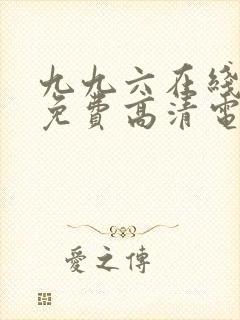 九九六在线
免费高清电
愛之傳